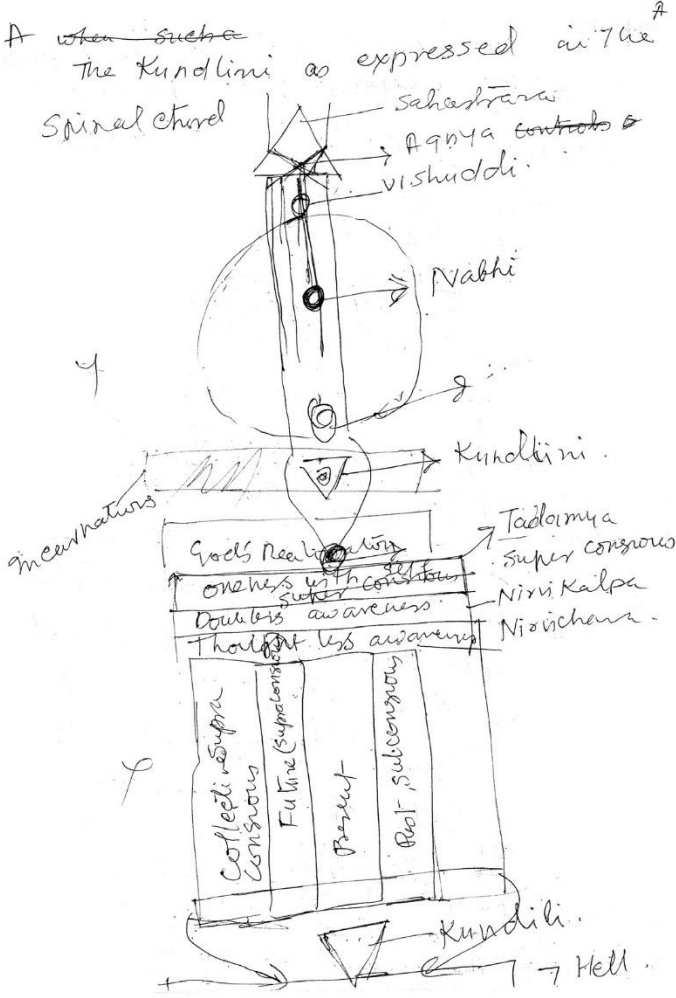 A
A when such a
The Kundlini as expressed in The
Spinal Chord
Sahashrara
Agnya controls
vishuddi.
Nabhi
Kundlini.
Incarnations
Tadatmya
super consious
God's Realization
oneness with self
super consious
Nirvi Kalpa
Doubless awareness
Nirvichara.
Thought less awareness
Collective Supra
consious
Future (supraconsious)
Present
Past, subconsious
Kundili.
Hell.